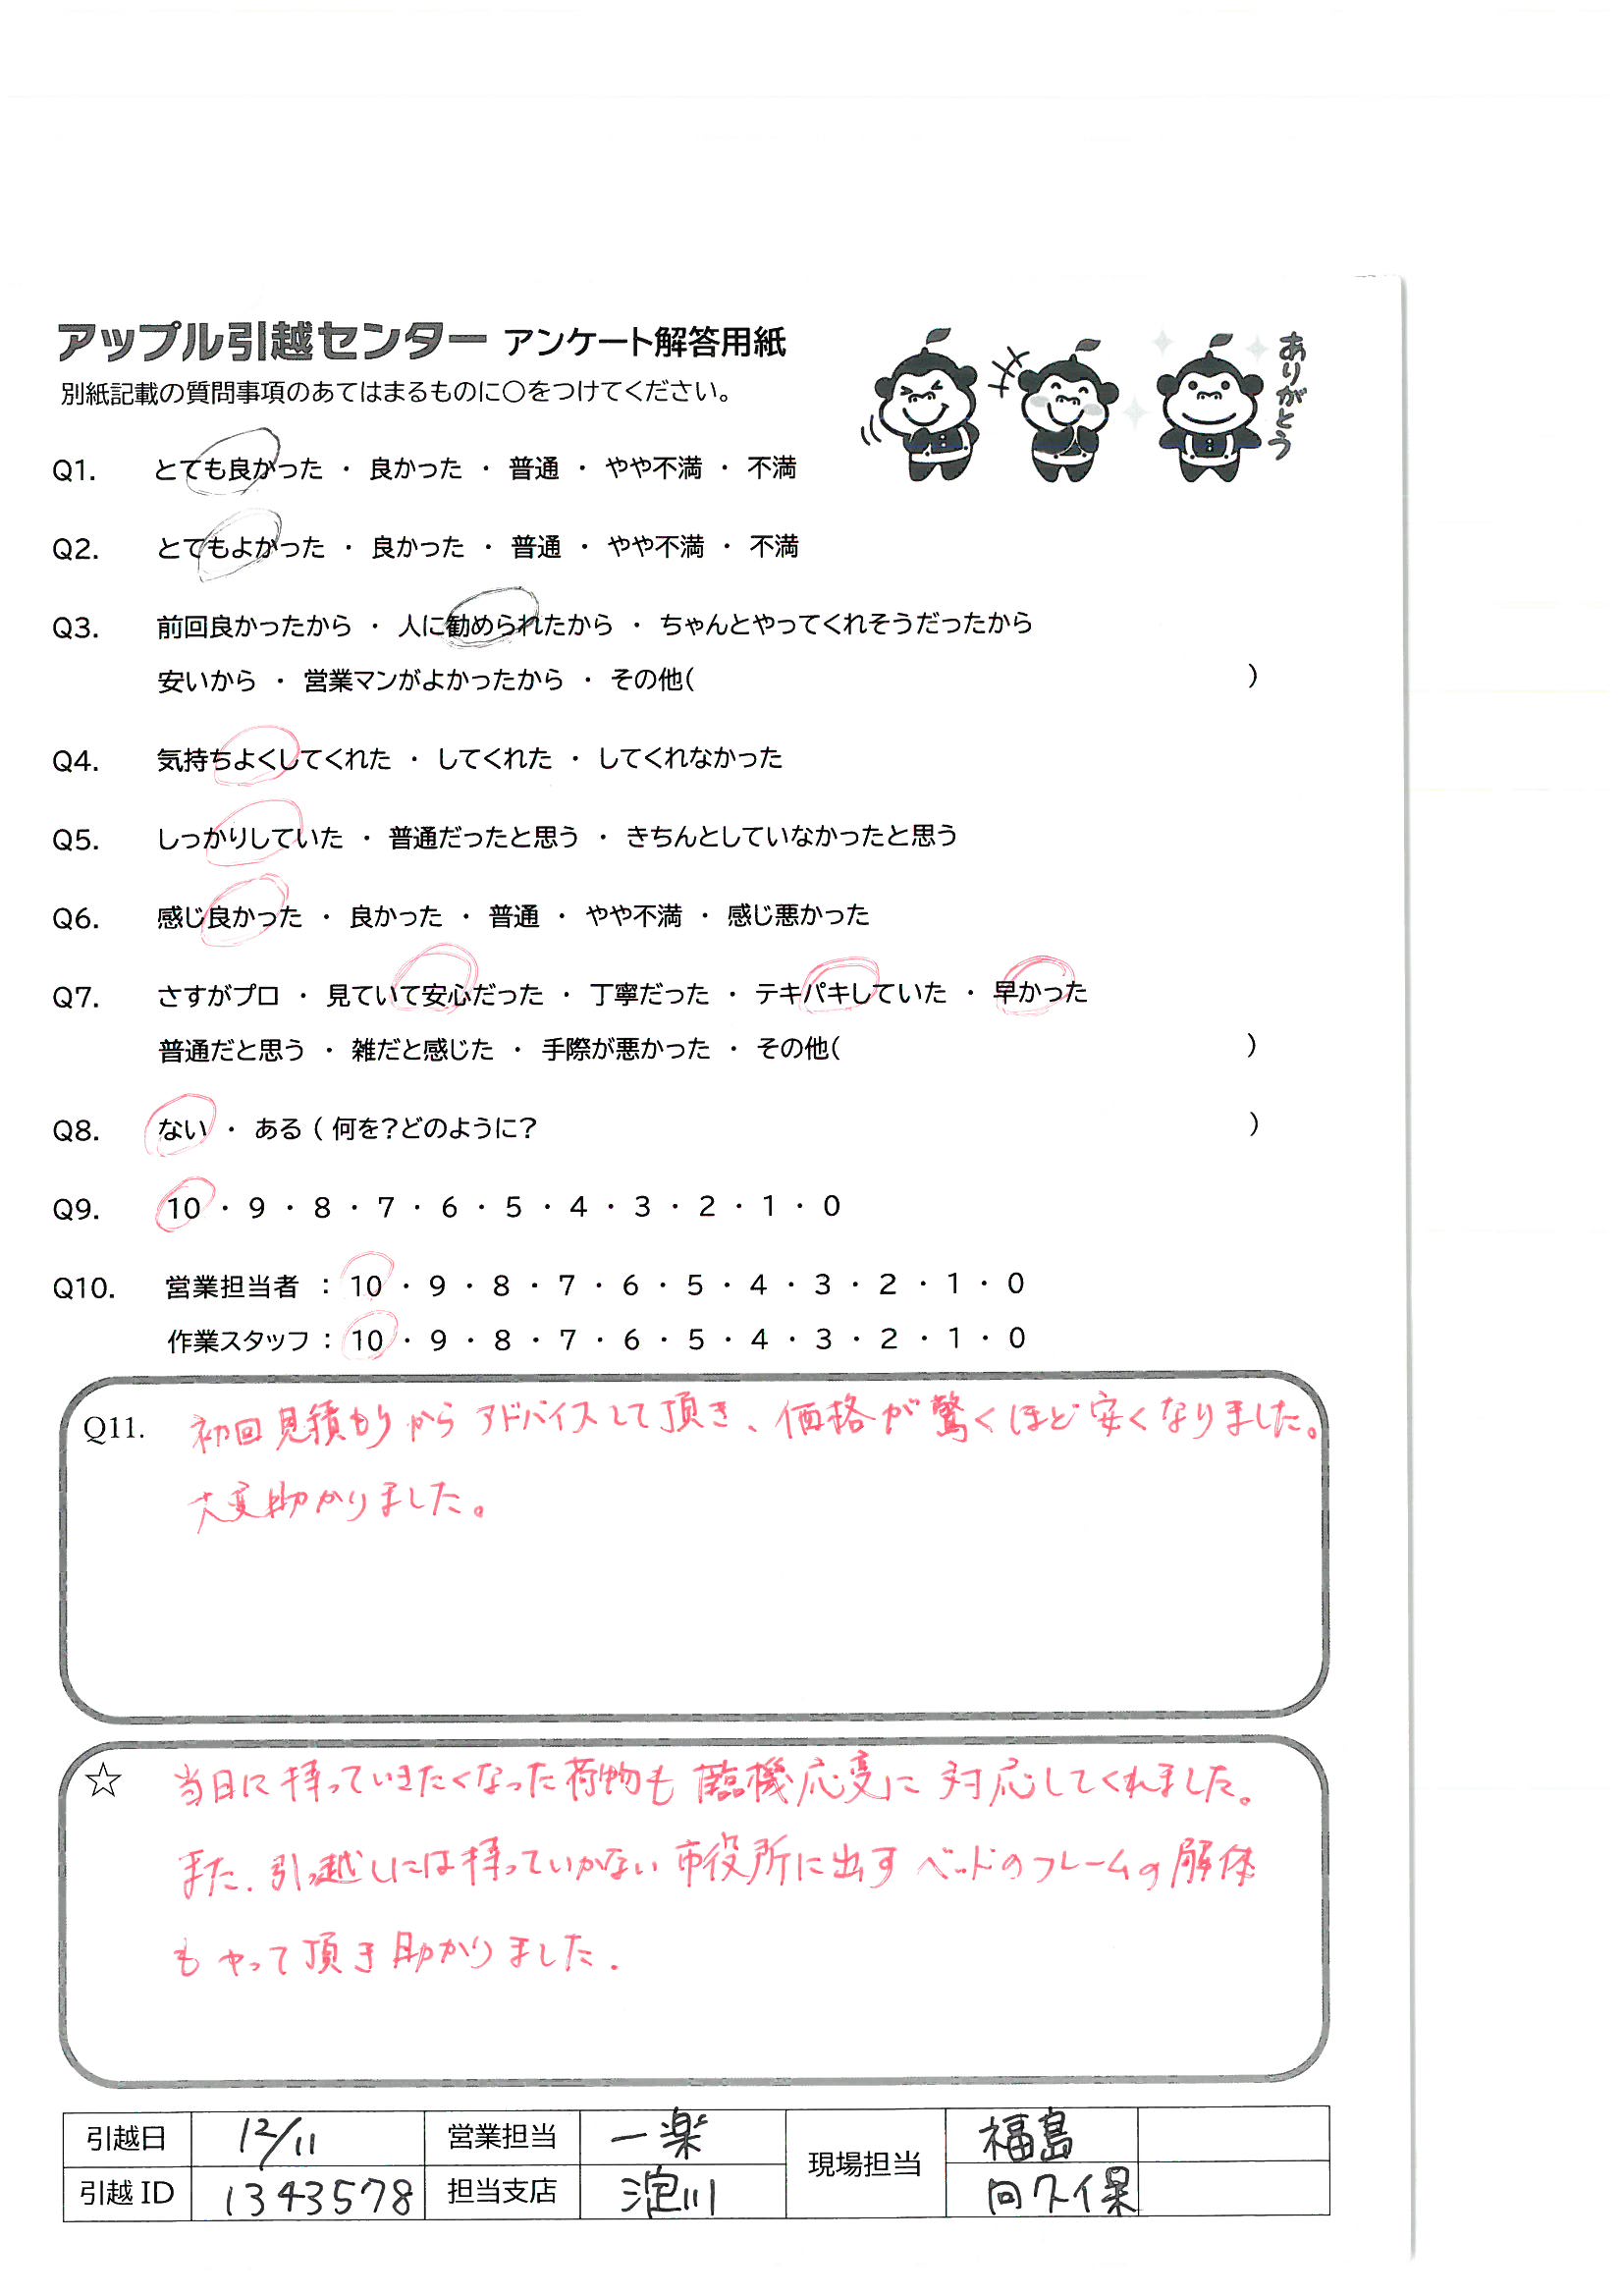 アップル引越センター アンケート解答用紙
ありがとう
別紙記載の質問事項のあてはまるものに○をつけてください。
Q1. とても良かった ・ 良かった ・ 普通 ・ やや不満 ・ 不満
Q2. とてもよかった ・ 良かった ・ 普通 ・ やや不満 ・ 不満
Q3. 前回良かったから ・ 人に勧められたから ・ ちゃんとやってくれそうだったから
安いから ・ 営業マンがよかったから ・ その他( )
Q4. 気持ちよくしてくれた ・ してくれた ・ してくれなかった
Q5. しっかりしていた ・ 普通だったと思う ・ きちんとしていなかったと思う
Q6. 感じ良かった ・ 良かった ・ 普通 ・ やや不満 ・ 感じ悪かった
Q7. さすがプロ ・ 見ていて安心だった ・ 丁寧だった ・ テキパキしていた ・ 早かった
普通だと思う ・ 雑だと感じた ・ 手際が悪かった ・ その他( )
Q8. ない ・ ある ( 何を?どのように? )
Q9. 10 ・ 9 ・ 8 ・ 7 ・ 6 ・ 5 ・ 4 ・ 3 ・ 2 ・ 1 ・ 0
Q10. 営業担当者 : 10 ・ 9 ・ 8 ・ 7 ・ 6 ・ 5 ・ 4 ・ 3 ・ 2 ・ 1 ・ 0
作業スタッフ : 10 ・ 9 ・ 8 ・ 7 ・ 6 ・ 5 ・ 4 ・ 3 ・ 2 ・ 1 ・ 0
Q11. 初回見積もりからアドバイスして頂き、価格が驚くほど安くなりました。
大変助かりました。
☆ 当日に持っていきたくなった荷物も臨機応変に対応してくれました。
また、引っ越しには持っていかない市役所に出すベッドのフレームの解体
もやって頂き助かりました.
引越日 12/11 営業担当 一楽 現場担当 福島
引越ID 1343578 担当支店 淀川 向久保